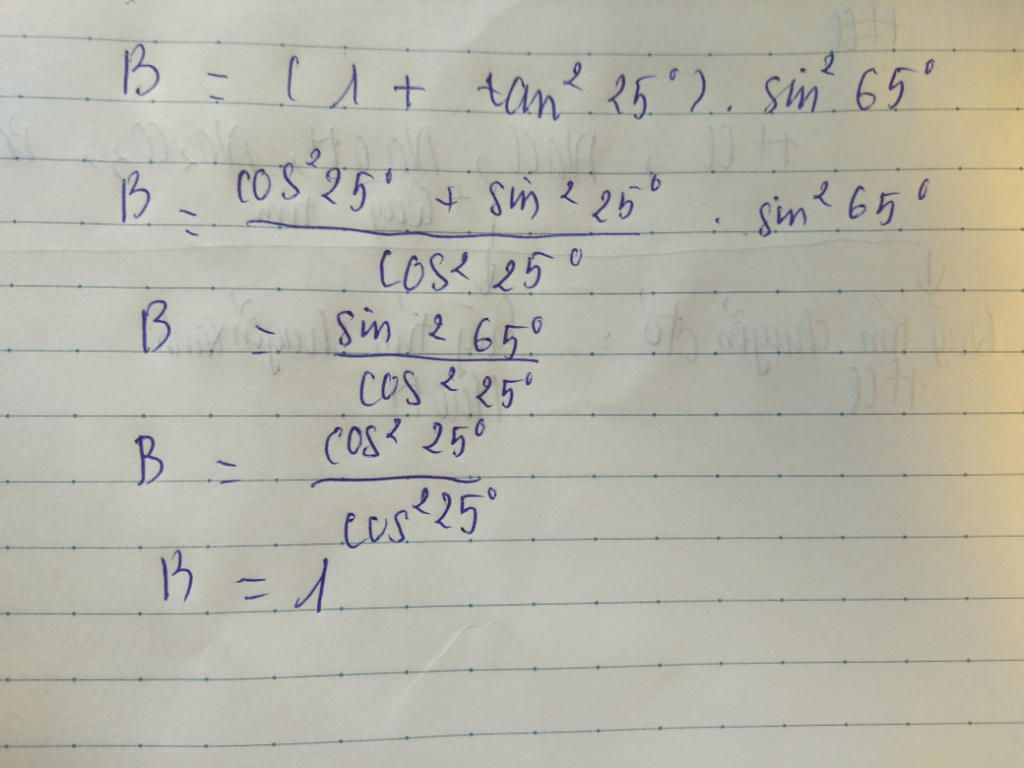 B = (1 + tan² 25°) . sin² 65°
B = (cos² 25° + sin² 25°) / (cos² 25°) . sin² 65°
B = (sin² 65°) / (cos² 25°)
B = (cos² 25°) / (cos² 25°)
B = 1